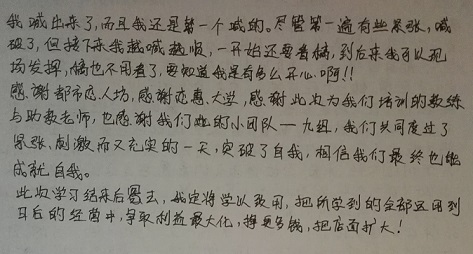 我喊出来了,而且我还是第一个喊的。尽管第一遍有些紧张,喊
破了,但接下来我越喊越顺,一开始还要看稿,到后来我可以现
场发挥,稿也不用看了,要知道我是有多么开心啊!!
感谢都市恋人坊,感谢恋惠大学,感谢此次为我们培训的教练
与助教老师,也感谢我们的小团队一九组,我们共同度过了
紧张、刺激而又充实的一天,突破了自我,相信我们最终也能
成就自我。
此次学习结束后回去,我定将学以致用,把所学到的全部运用到
日后的经营中,争取利益最大化,挣更多钱,把店面扩大!